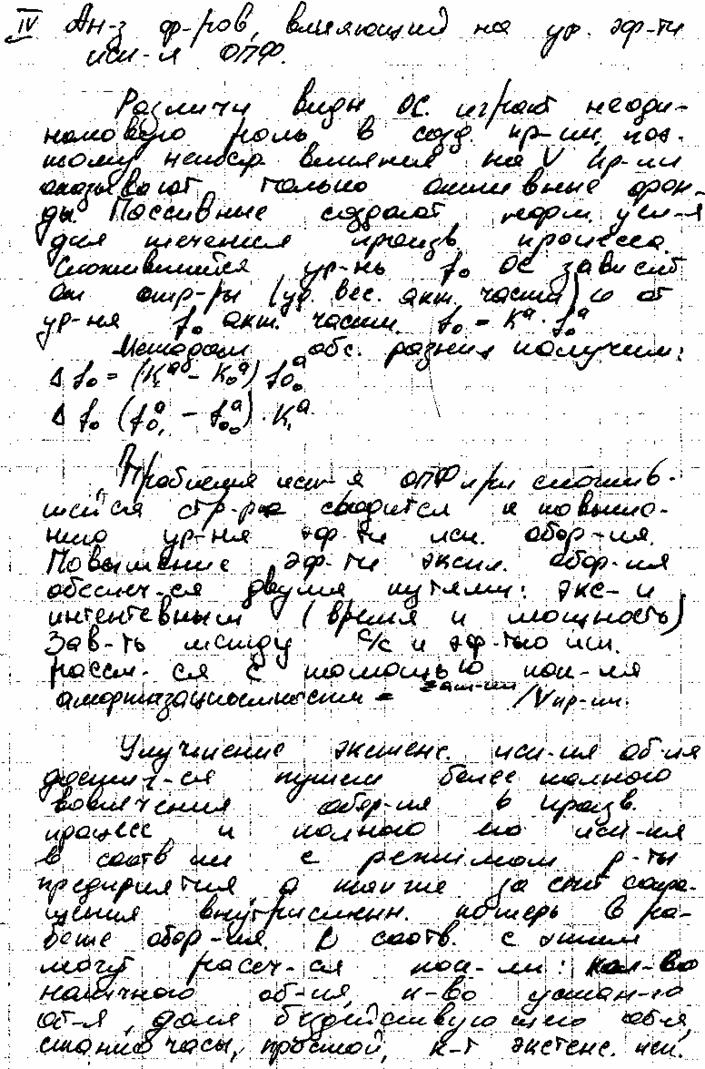 IV Ан-з ф-ров, влияющий на ур. эф-ти
исп-я ОПФ.
Различн виды ОС играют неоди-
наковую роль в созд. пр-ии, поэ-
тому непоср. влияния на V пр-ии
оказывают только активные фон-
ды. Пассивные создают норм. усл-я
для течения произв. процесса.
Сложившийся ур-нь fо ОС зависит
от стр-ры (уд. вес. акт. части) и от
ур-ня fо акт. части. fо = Kᵃ · fоᵃ
Методом абс. разниц получим:
Δ fо = (K₁ᵃ - K₀ᵃ) fо₀ᵃ
Δ fо (fо₁ᵃ - fо₀ᵃ) · K₁ᵃ
Проблема исп-я ОПФ при сложив-
шейся стр-ре сводится к повыше-
нию ур-ня эф-ти исп. обор-ия.
Повышение эф-ти эксп. обор-ия
обеспеч-ся двумя путями: экс- и
интентевным (время и мощность)
Зав-ть между с/с и эф-тью исп.
рассм-ся с помощью пок-ля
амортазационность = /V пр-ии.
Улучшение экстенс. исп-ия об-ия
достиг-ся путем более полного
вовлечения обор-ия в произв.
процесс и полного его исп-ия
в соотв-ии с режимом р-ты
предприятия а также за счет сокра-
щения внутрисменн. потерь в ра-
боте обор-ия. В соотв. с этим
могут рассч-ся пок-ли: кол-во
наличного об-ия, к-во устан-го
об-я, доля бездействующего об-я,
станко часы, простой, к-т экстенс. исп.